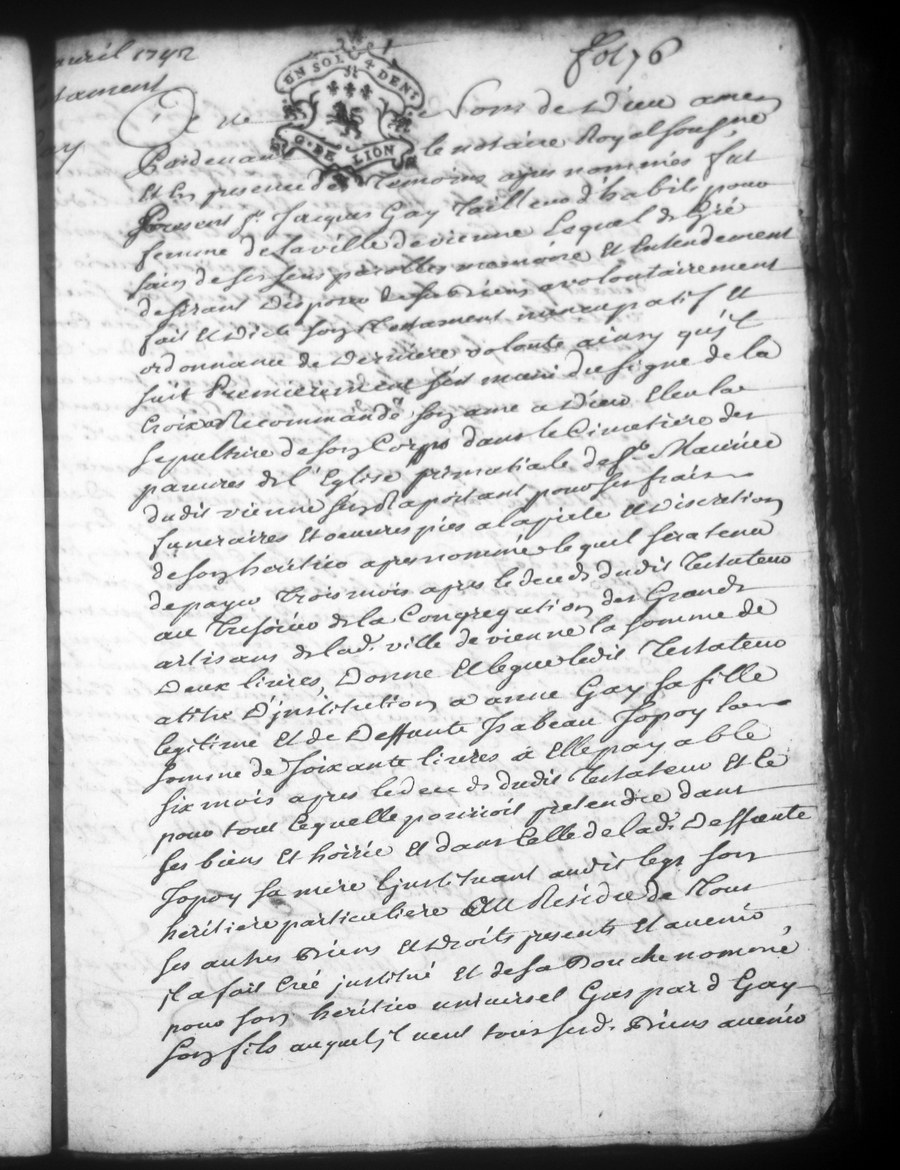 avril 1742
testament
fol 76
UN SOL 4 DENI
G. DE LION
nom de Dieu amen
Pardevant le notaire Royal sousigné
et en presence des temoins apres nommés fut
present sr. Jacques Gay tailleur d'habits pour
femme de la ville de vienne lequel de gré
sain de ses sens parolles memoire et Entendement
desirant disposer de ses biens a volontairement
fait et dicté son testament nuncupatif et
ordonnance de derniere volonté ainsy qu'jl
suit Premierement s'est muni du signe de la
Croix Recommandé son ame a Dieu Eleu la
sepulture de son Corps dans le Cimetiere des
pauvres de l'Eglise primatiale de St. Maurice
dudit vienne s'en Raportant pour ses frais
funeraires et oeuvres pies a la pieté et discretion
de son heritier apres nommé lequel sera tenu
de payer trois mois apres le deceds dudit testateur
au tresorier de la Congregation des Grands
artisans de lad. ville de vienne la somme de
Deux livres, Donne et legue ledit testateur
a titre d'jnstitution a anne Gay sa fille
legitime et de deffunte Isabeau Jopoy la
somme de soixante livres a Elle payable
six mois apres le deceds dudit testateur et ce
pour tout ce quelle pourroit pretendre dans
ses biens et hoirie et dans celle de lad. deffunte
Jopoy sa mere l'jnstituant audit legs son
heritiere particuliere Au Residu de tous
ses autres biens et droits presents et avenir
jl a fait creé jnstitué et de sa bouche nommé
pour son heritier universel Gaspard Gay
son fils auquel jl veut tous sesd. biens avenir